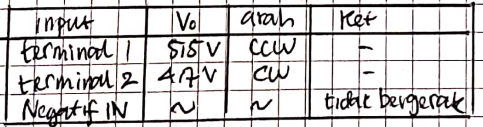 Input Vo arah Ket
terminal 1 5,5 V CCW -
terminal 2 4.7 V CW -
Negatif IN ~ ~ tidak bergerak